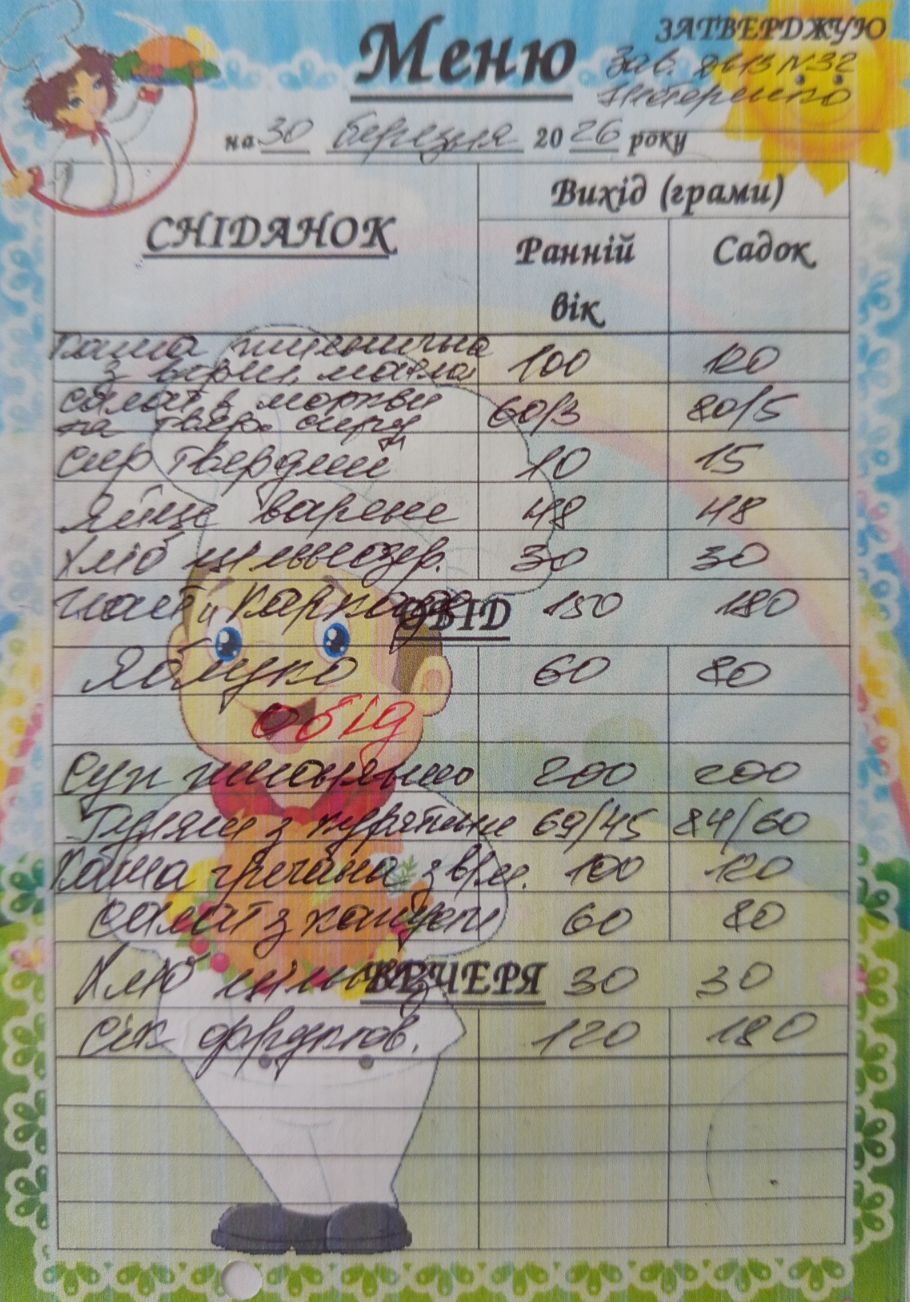 Меню
ЗАТВЕРДЖУЮ
Зав. ДНЗ N32
на 30 березня 2026 року
СНІДАНОК
Вихід (грами)
Ранній вік
Садок
Каша пшенична
з верш. масла 100 120
салат з моркви
та твер. сиру 60/3 80/5
сир твердий 10 15
яйце варене 48 48
Хліб цільнозер. 30 30
ОБІД
Чай "Каркаде 150 180
Яблуко 60 80
обід
Суп 200 200
Гуляш з курятини 69/45 84/60
Каша гречана з врм. 100 120
Салат з капусти 60 80
ВЕЧЕРЯ
Хліб цільноз 30 30
Сік фруктов. 120 180